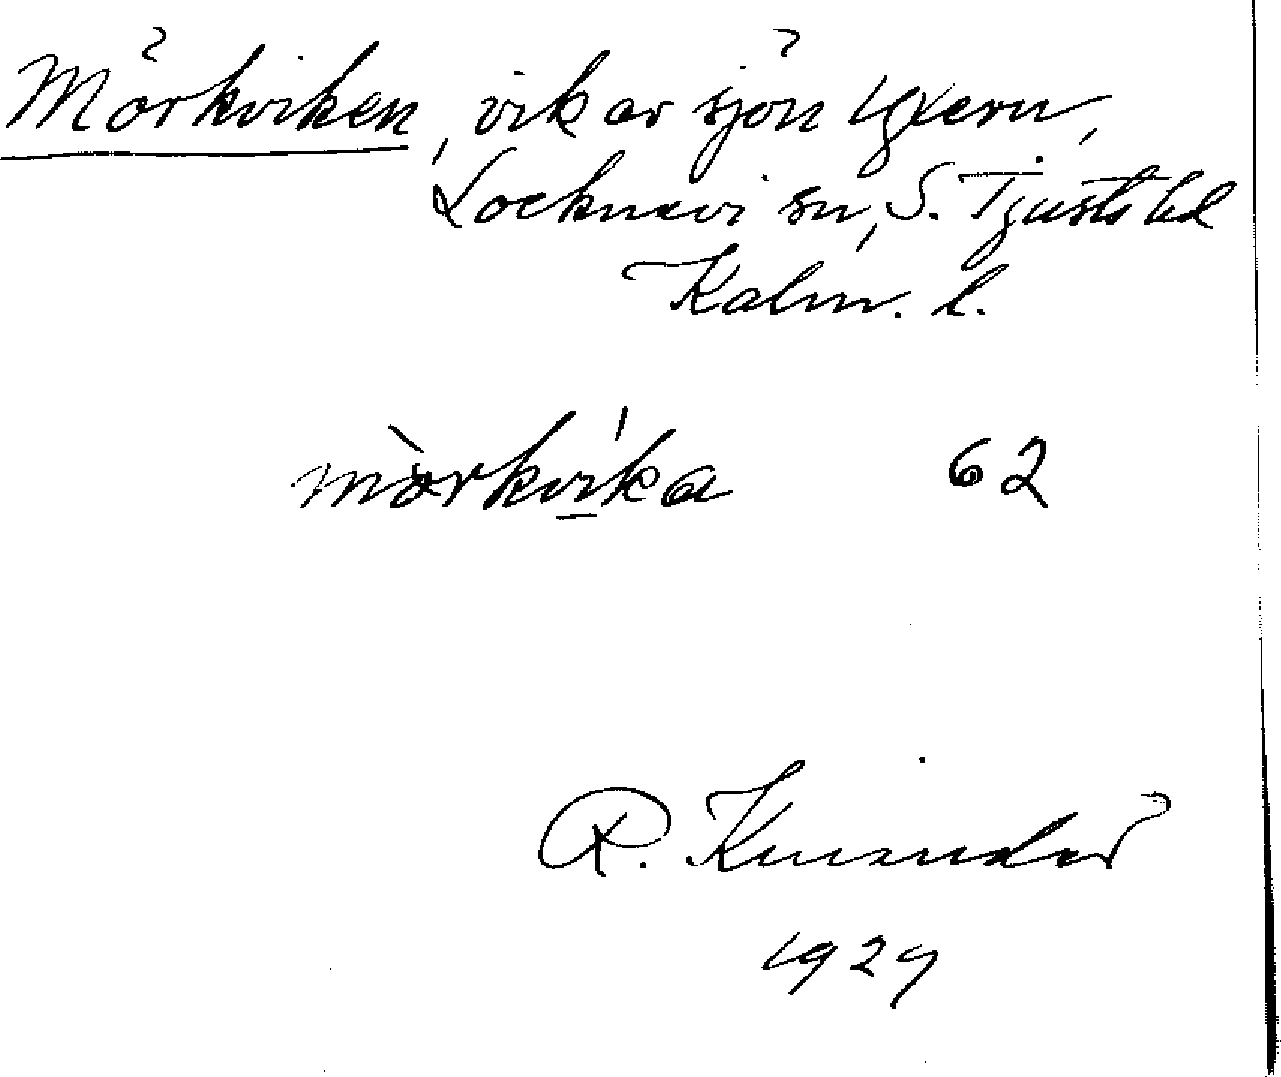 Mörkviken, vik av sjön Yxern,
Locknevi sn, S. Tjusts hd
Kalm. l.
mörkvika 62
R. Kinander
1929